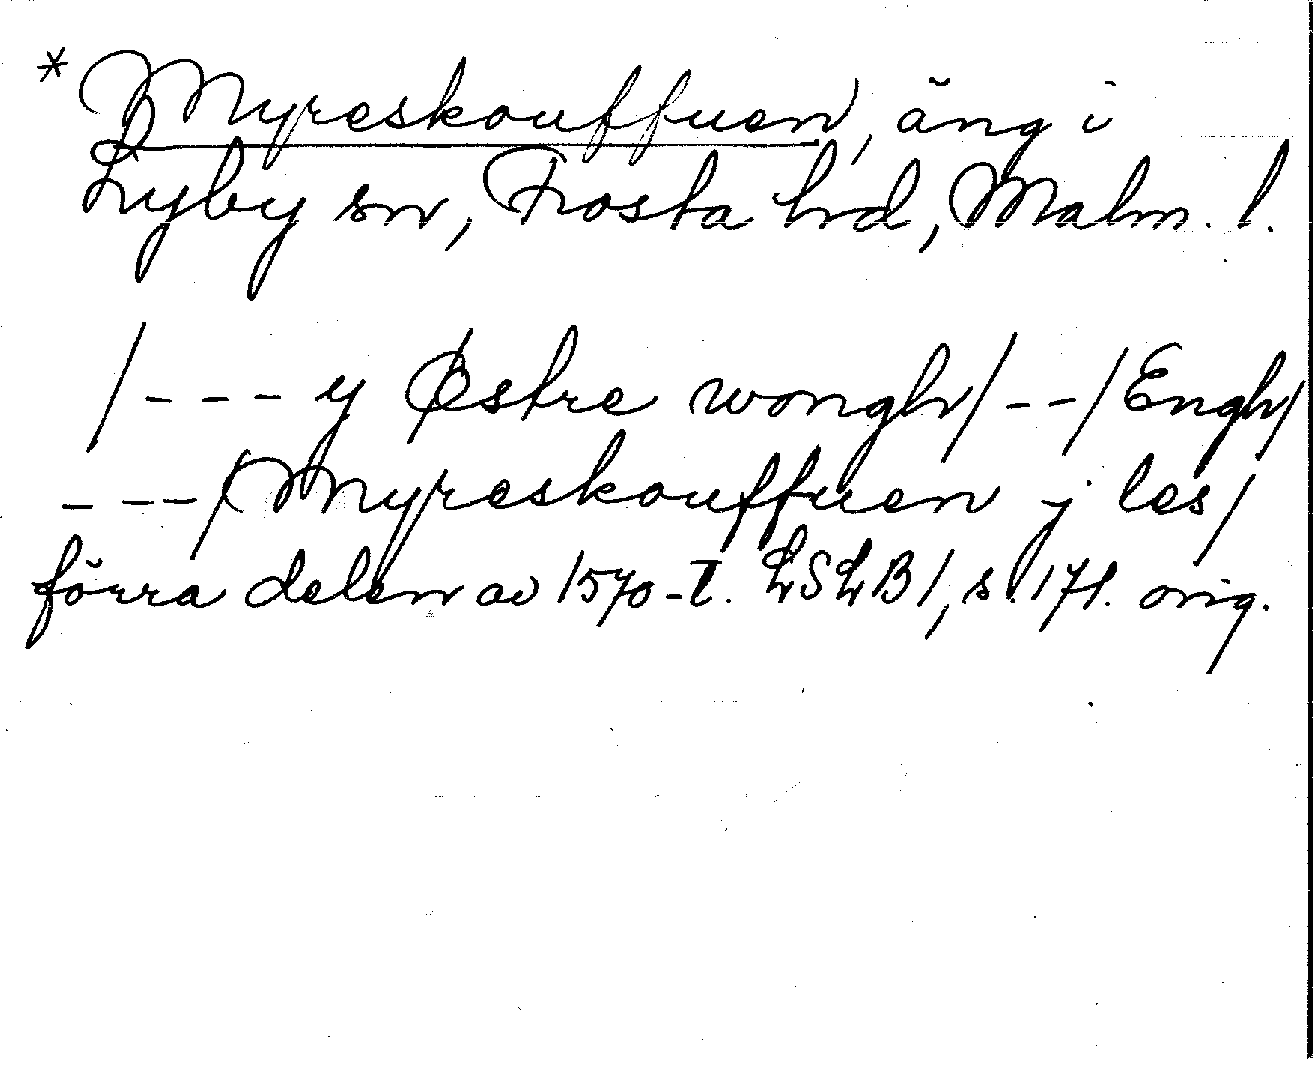 * Myreskouffuen, äng i
Lyby sn, Frosta hd, Malm. l.
/--- y Østre wongh/--/Engh/
---/Myreskouffuen j les/
förra delen av 1570-t. LSLB1, s.171. orig.